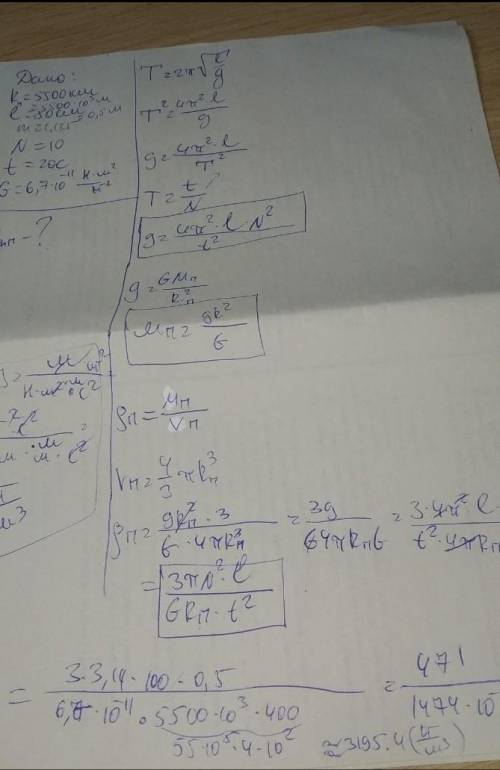 Дано:
R = 5500 км
= 5500·10³ м
l = 50 см = 0,5 м
N = 10
t = 20с
G = 6,7·10⁻¹¹ Н·м²/кг²
ρп - ?
T = 2π√(l/g)
T² = 4π²l/g
g = 4π²·l/T²
T = t/N
g = 4π²·l·N²/t²
g = GMп/Rп²
Mп = gR²/G
ρп = Mп/Vп
Vп = 4/3 πRп³
ρп = gRп²·3/G·4πRп³ = 3g/G4πRпG = 3·4π²·l·/t²·4πRп
= 3πN²·l/GRп·t²
= 3·3,14·100·0,5/6,7·10⁻¹¹·5500·10³·400 = 471/1474·10
55·10⁵·4·10²
≈ 3195.4 (кг/м3)